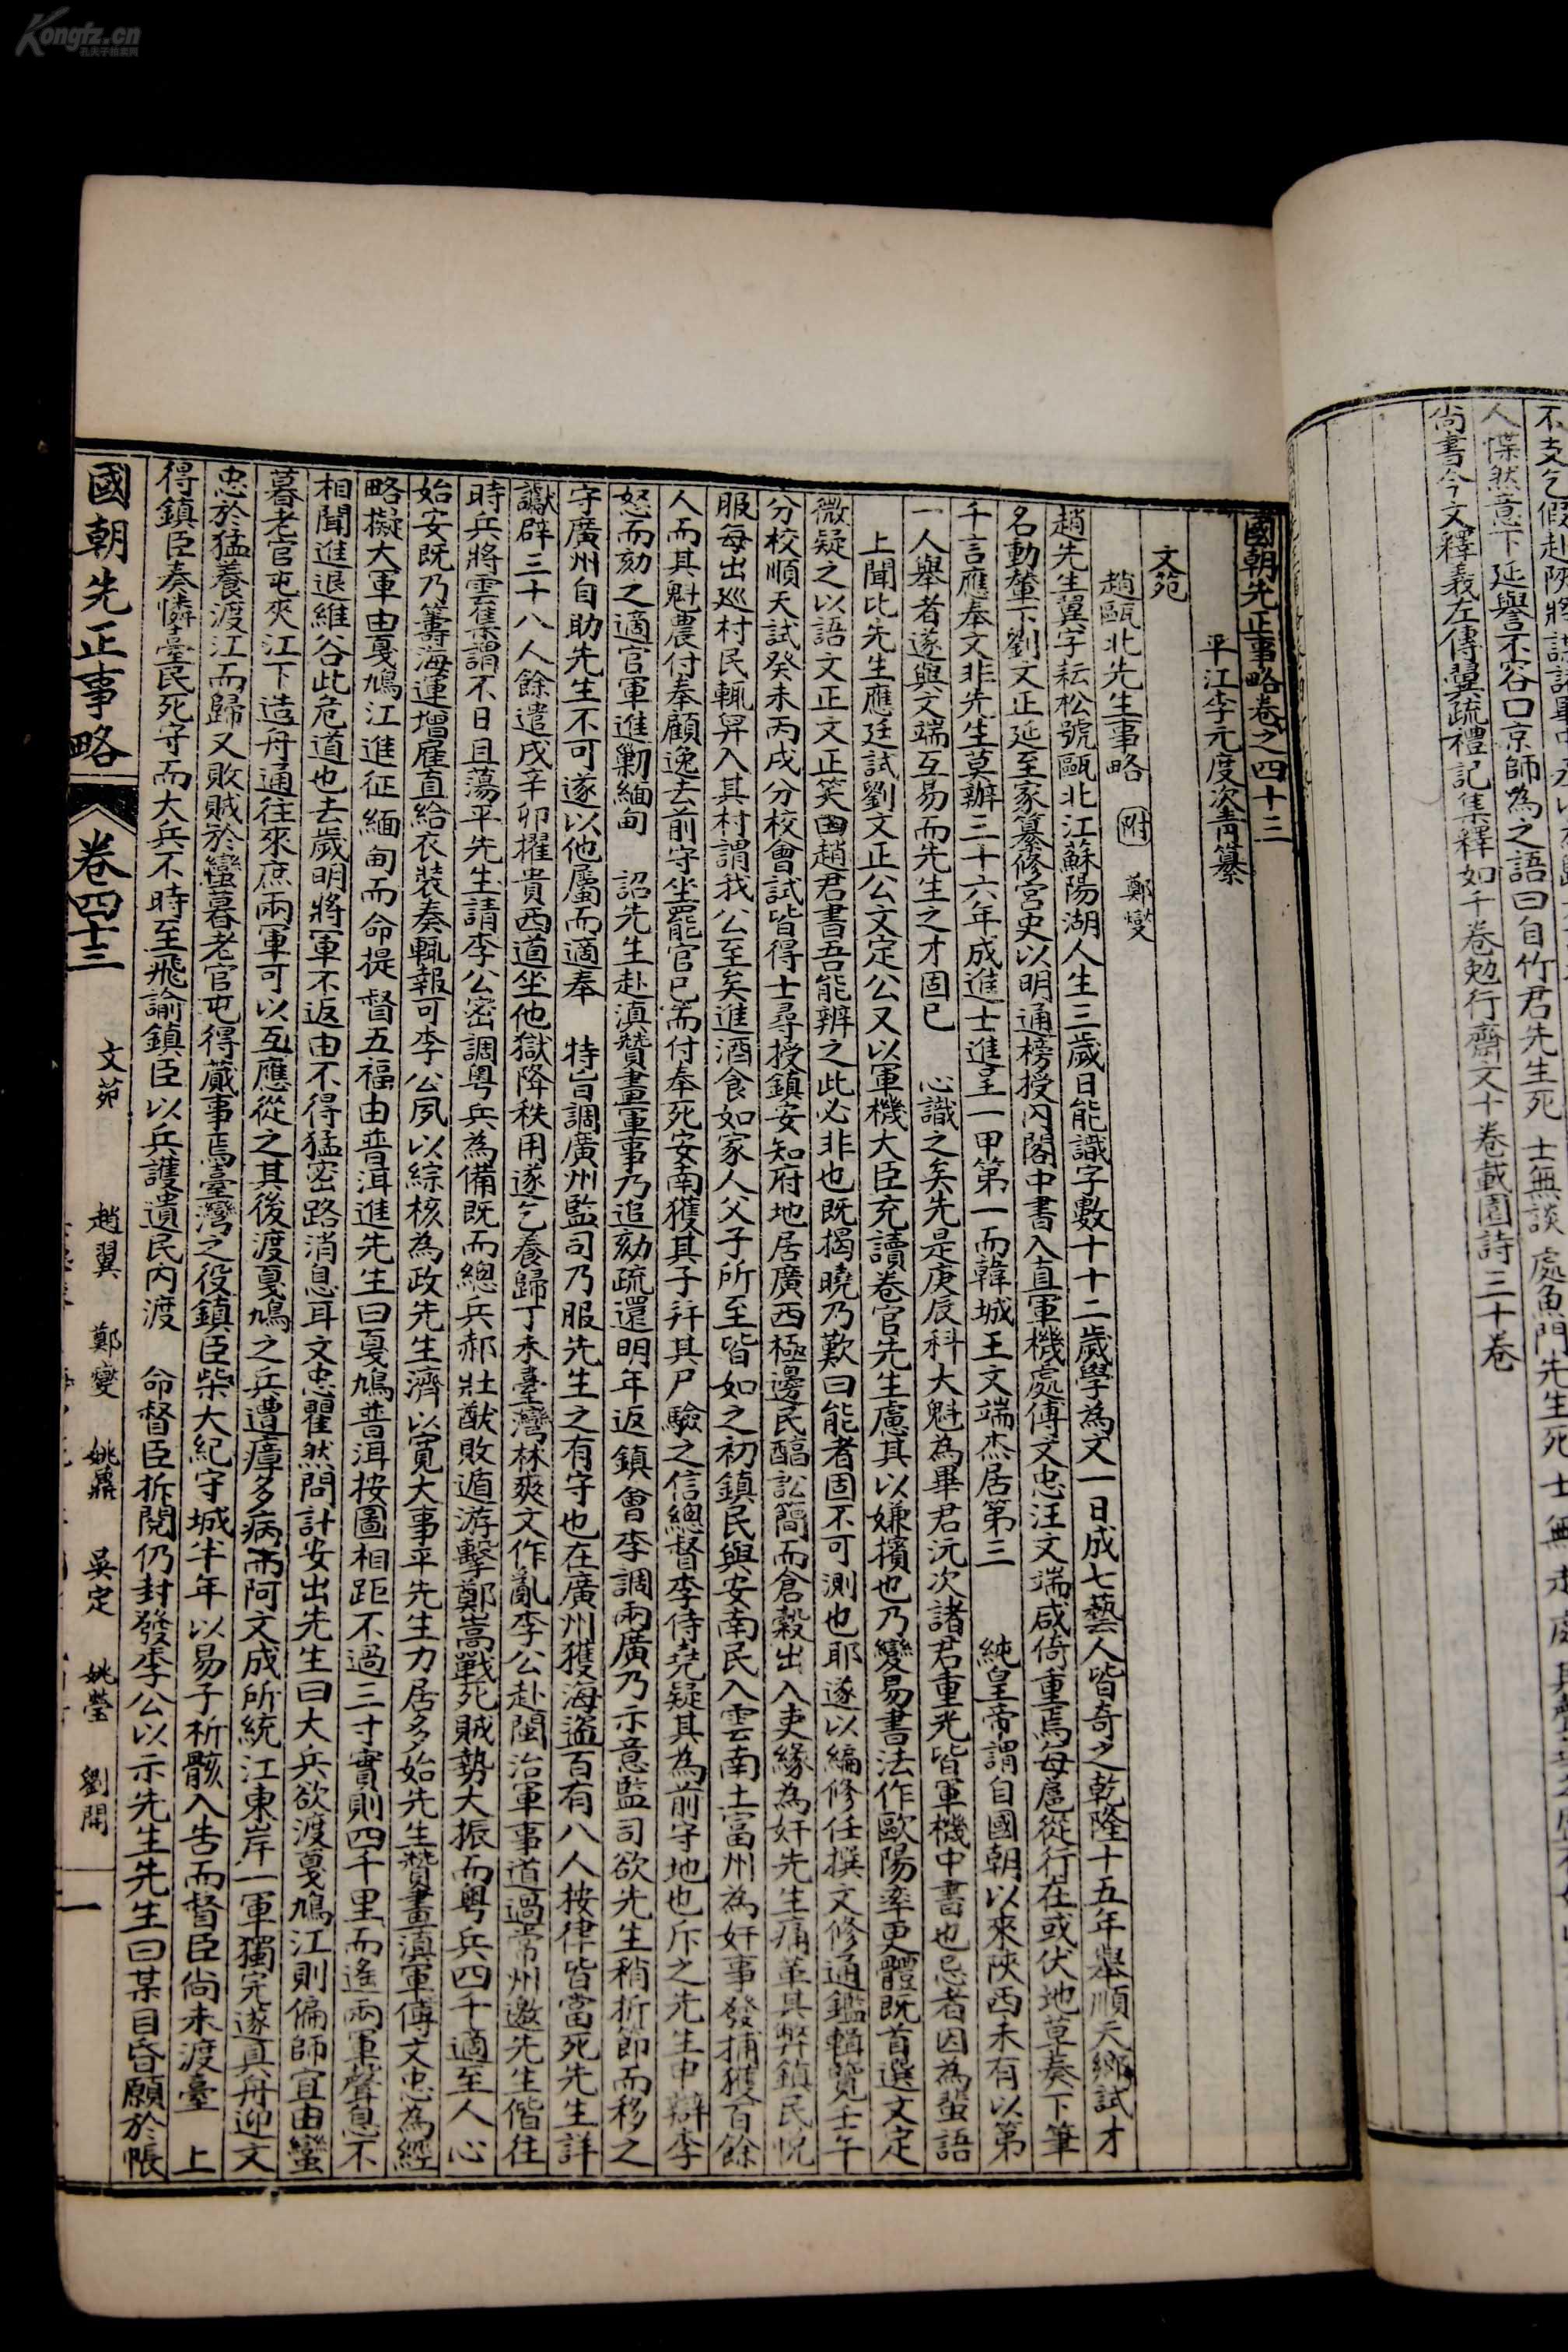 Kongfz.cn
孔夫子拍卖网
尚書今文釋義左傳翼疏禮記集釋如千卷勉行齋文十卷載園詩三十卷
國朝先正事略卷之四十三
平江李元度次青纂
文苑
趙甌北先生事略 附 鄭燮
趙先生翼字耘松號甌北江蘇陽湖人生三歲日能識字數十十二歲學為文一日成七藝人皆奇之乾隆十五年舉順天鄉試才
名動輦下劉文正延至家纂修宮史以明通榜授內閣中書入直軍機處傅文忠汪文端咸倚重焉每扈從行在或伏地草奏下筆
千言應奉文非先生莫辦三十六年成進士進呈一甲第一而韓城王文端杰居第三 純皇帝謂自國朝以來陝西未有以第
一人舉者遂與文端互易而先生之才固已 心識之矣先是庚辰科大魁為畢君沅次諸君重光皆軍機中書也忌者因為蜚語
上聞比先生應廷試劉文正公文定公又以軍機大臣充讀卷官先生慮其以嫌擯也乃變易書法作歐陽率更體既首選文定
微疑之以語文正文正笑曰趙君書吾能辨之此必非也既揭曉乃歎曰能者固不可測也耶遂以編修任撰文修通鑑輯覽壬午
分校順天試癸未丙戌分校會試皆得士尋授鎮安知府地居廣西極邊民醕訟簡而倉穀出入吏緣為奸先生痛革其弊鎮民悅
服每出巡村民輒舁入其村謂我公至矣進酒食如家人父子所至皆如之初鎮民與安南民入雲南土富州為奸事發捕獲百餘
人而其魁農付奉顧逸去前守坐罷官已而付奉死安南獲其子并其尸驗之信總督李侍堯疑其為前守地也斥之先生申辯李
怒而劾之適官軍進勦緬甸 詔先生赴滇贊畫軍事乃追劾疏還明年返鎮會李調兩廣乃示意監司欲先生稍折節而移之
守廣州自助先生不可遂以他屬而適奉 特旨調廣州監司乃服先生之有守也在廣州獲海盜百有八人按律皆當死先生詳
讞辟三十八人餘遣戍辛卯擢貴西道坐他獄降秩用遂乞養歸丁未臺灣林爽文作亂李公赴閩治軍事道過常州邀先生偕往
時兵將雲集謂不日且蕩平先生請李公密調粵兵為備既而總兵郝壯猷敗遁游擊鄭嵩戰死賊勢大振而粵兵四千適至人心
始安既乃籌海運增雇直給衣裝奏輒報可李公夙以綜核為政先生濟以寬大事平先生力居多始先生贊畫滇軍傅文忠為經
略擬大軍由戛鳩江進征緬甸而命提督五福由普洱進先生曰戛鳩普洱按圖相距不過三寸實則四千里而遙兩軍聲息不
相聞進退維谷此危道也去歲明將軍不返由不得猛密路消息耳文忠瞿然問計安出先生曰大兵欲渡戛鳩江則偏師宜由蠻
暮老官屯夾江下造舟通往來庶兩軍可以互應從之其後渡戛鳩之兵遭瘴多病而阿文成所統江東岸一軍獨完遂具舟迎文
忠於猛養渡江而歸又敗賊於蠻暮老官屯得蕆事焉臺灣之役鎮臣柴大紀守城半年以易子析骸入告而督臣尚未渡臺 上
得鎮臣奏憐臺民死守而大兵不時至飛諭鎮臣以兵護遺民內渡 命督臣拆閱仍封發李公以示先生先生曰某目昏願於帳
國朝先正事略 卷四十三 文苑 趙翼 鄭燮 姚鼐 吳定 姚瑩 劉開 一